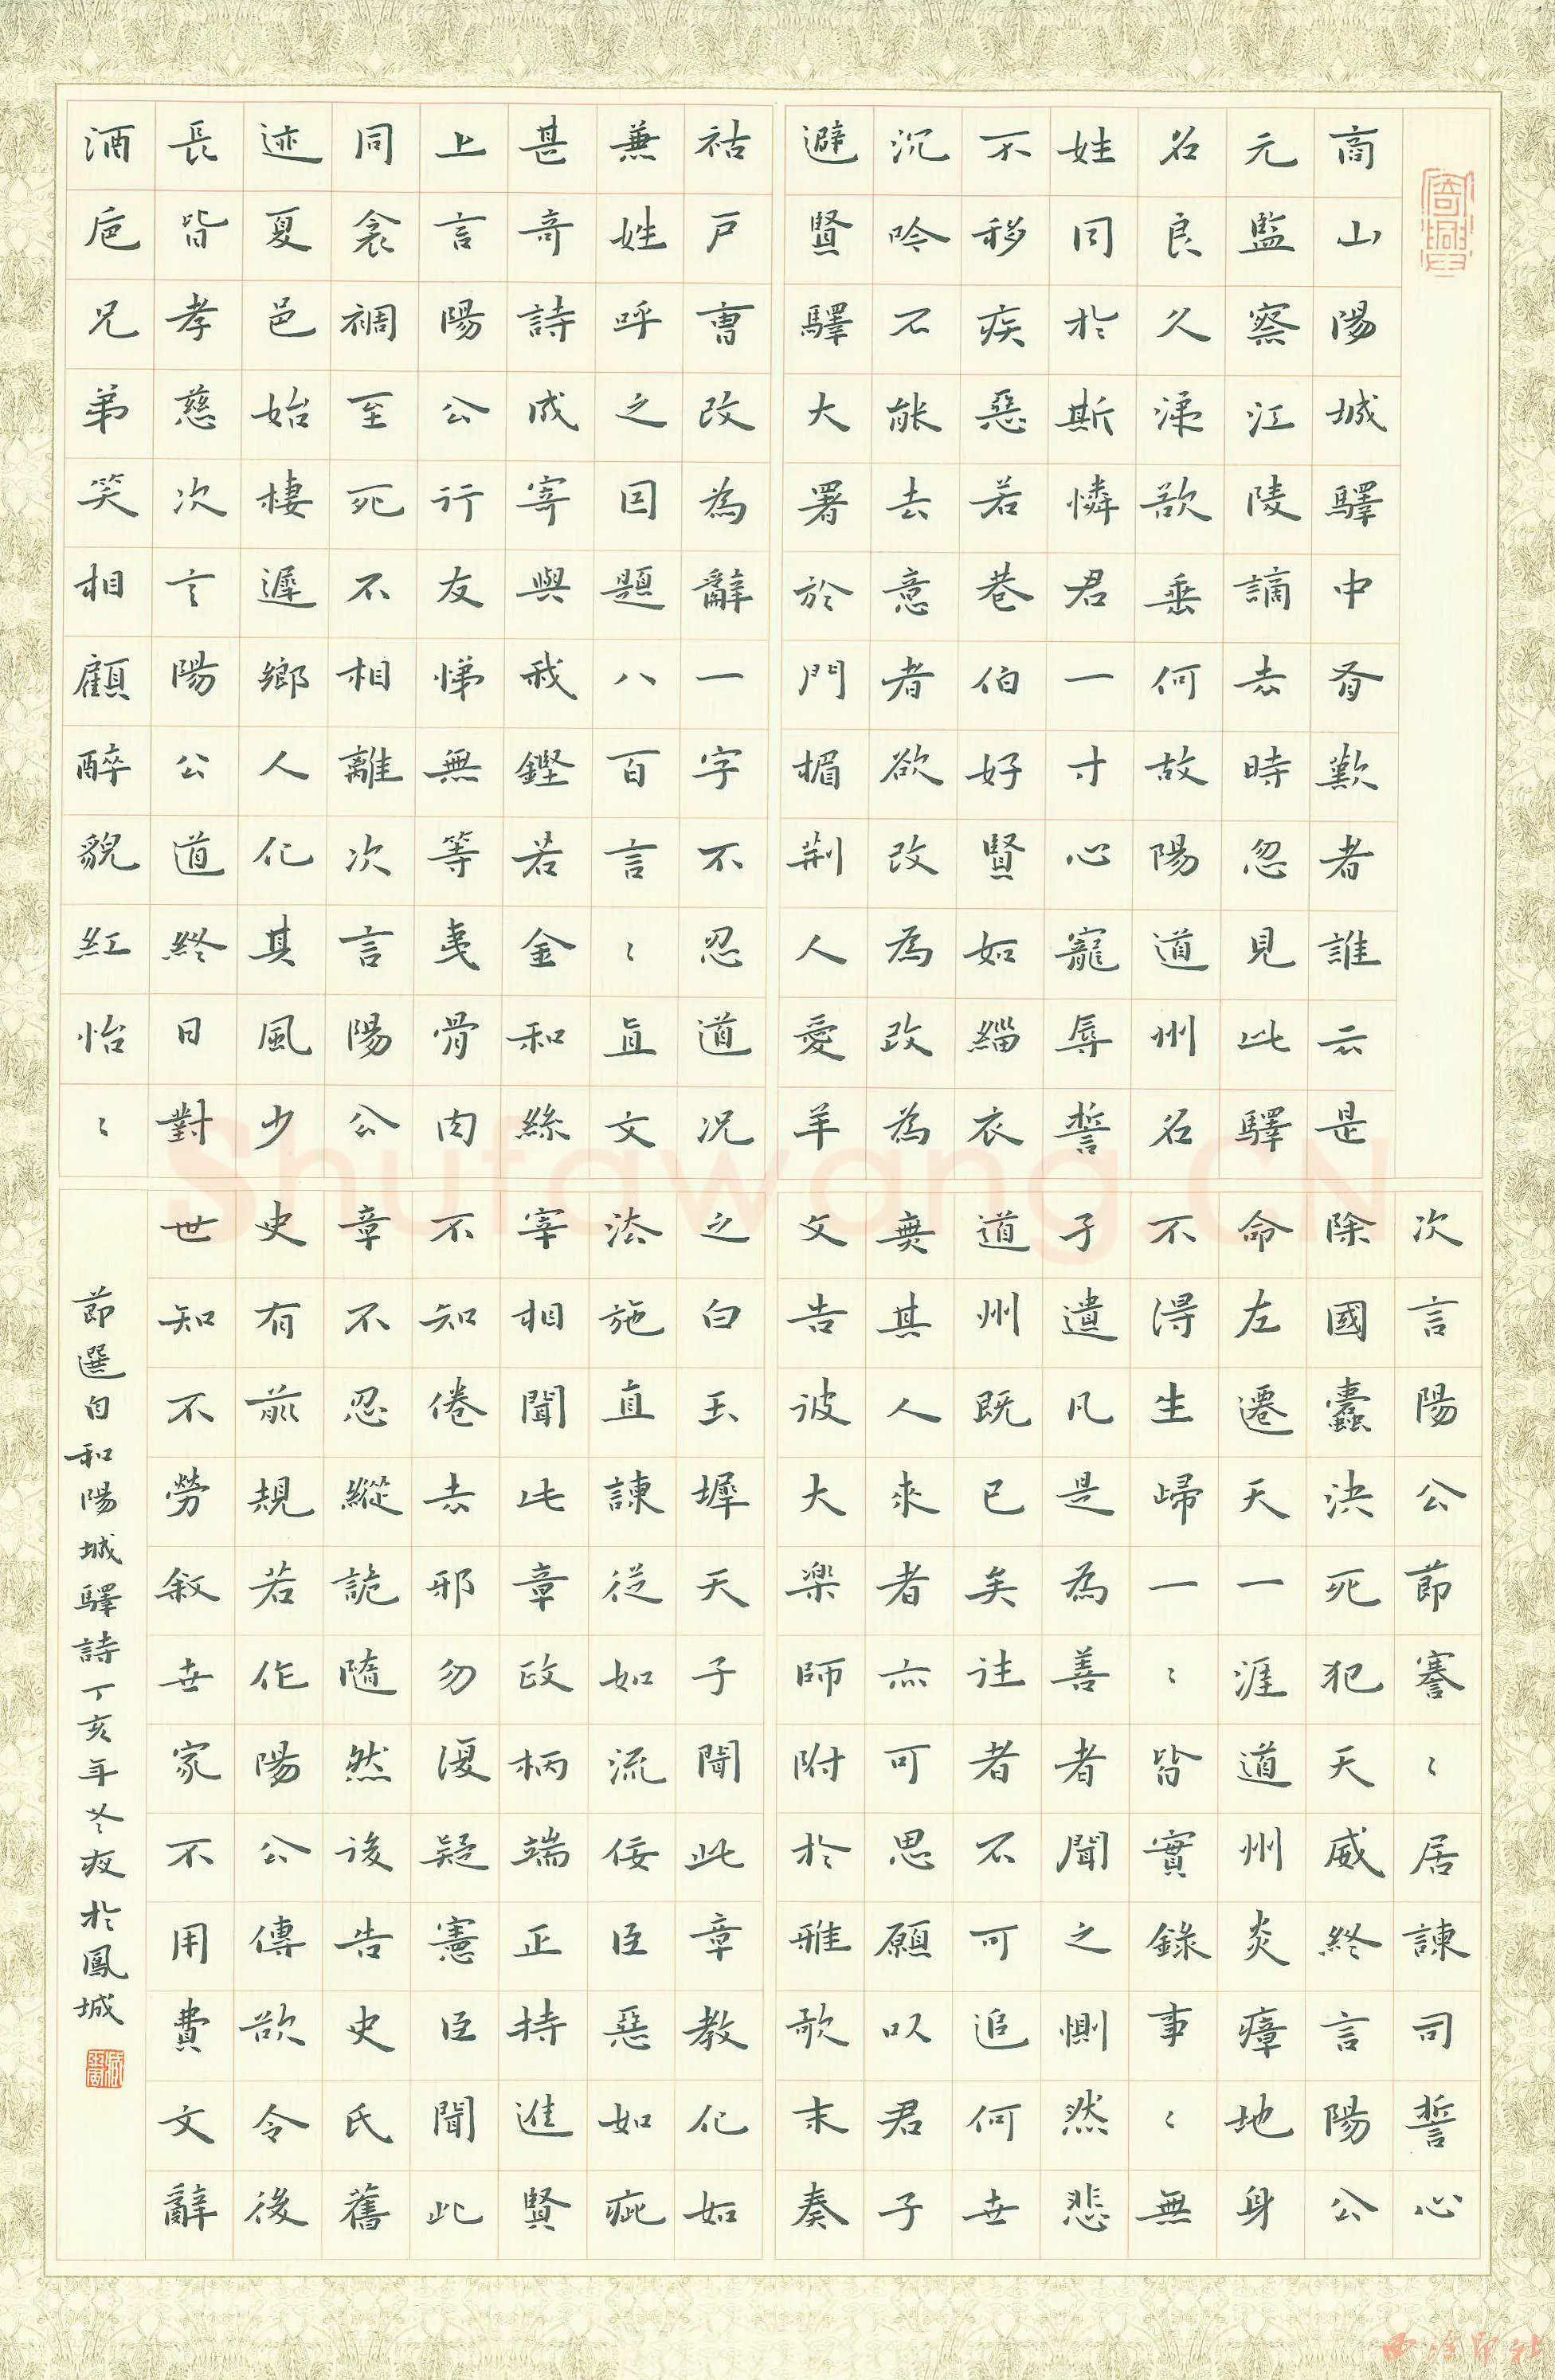 商山陽城驛中有歎者誰云是
元監察江陵謫去時忽見此驛
名良久涕欲垂何故陽道州名
姓同於斯憐君一寸心寵辱誓
不移疾惡若巷伯好賢如緇衣
沉吟不能去意者欲改為改為
避賢驛大署於門楣荊人愛羊
祜戶曹改為辭一字不忍道況
兼姓呼之因題八百言〻直文
甚奇詩成寄與我鏗若金和絲
上言陽公行友悌無等夷骨肉
同衾裯至死不相離次言陽公
迹夏邑始棲遲鄉人化其風少
長皆孝慈次言陽公道終日對
酒卮兄弟笑相顧醉貌紅怡〻
次言陽公節謇〻居諫司誓心
除國蠹決死犯天威終言陽公
命左遷天一涯道州炎瘴地身
不得生歸一〻皆實錄事〻無
孑遺凡是為善者聞之惻然悲
道州既已矣往者不可追何世
無其人來者亦可思願以君子
文告彼大樂師附於雅歌末奏
之白玉墀天子聞此章教化如
法施直諫從如流佞臣惡如疵
宰相聞此章政柄端正持進賢
不知倦去邪勿復疑憲臣聞此
章不忍縱詭隨然後告史氏舊
史有前規若作陽公傳欲令後
世知不勞敘世家不用費文辭
節選白和陽城驛詩丁亥年冬夜於鳳城
Shufawang.CN
西泠印社